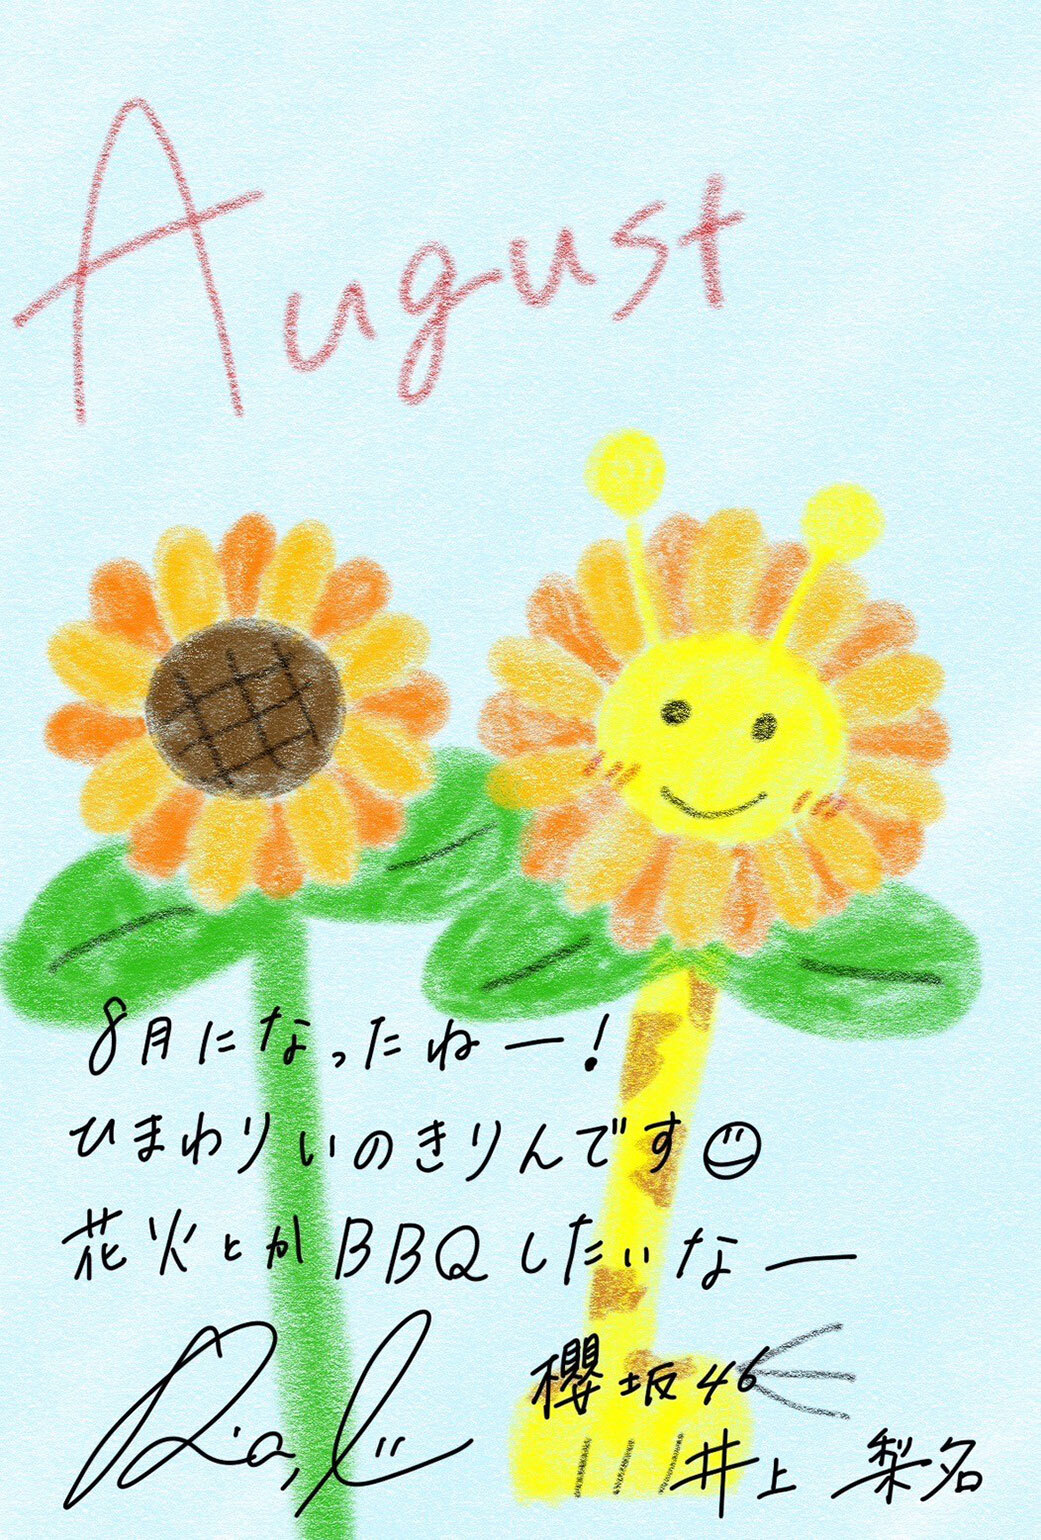 August
8月になったねー!
ひまわりいのきりんです
花火とかBBQしたいなー
櫻坂46
井上 梨名